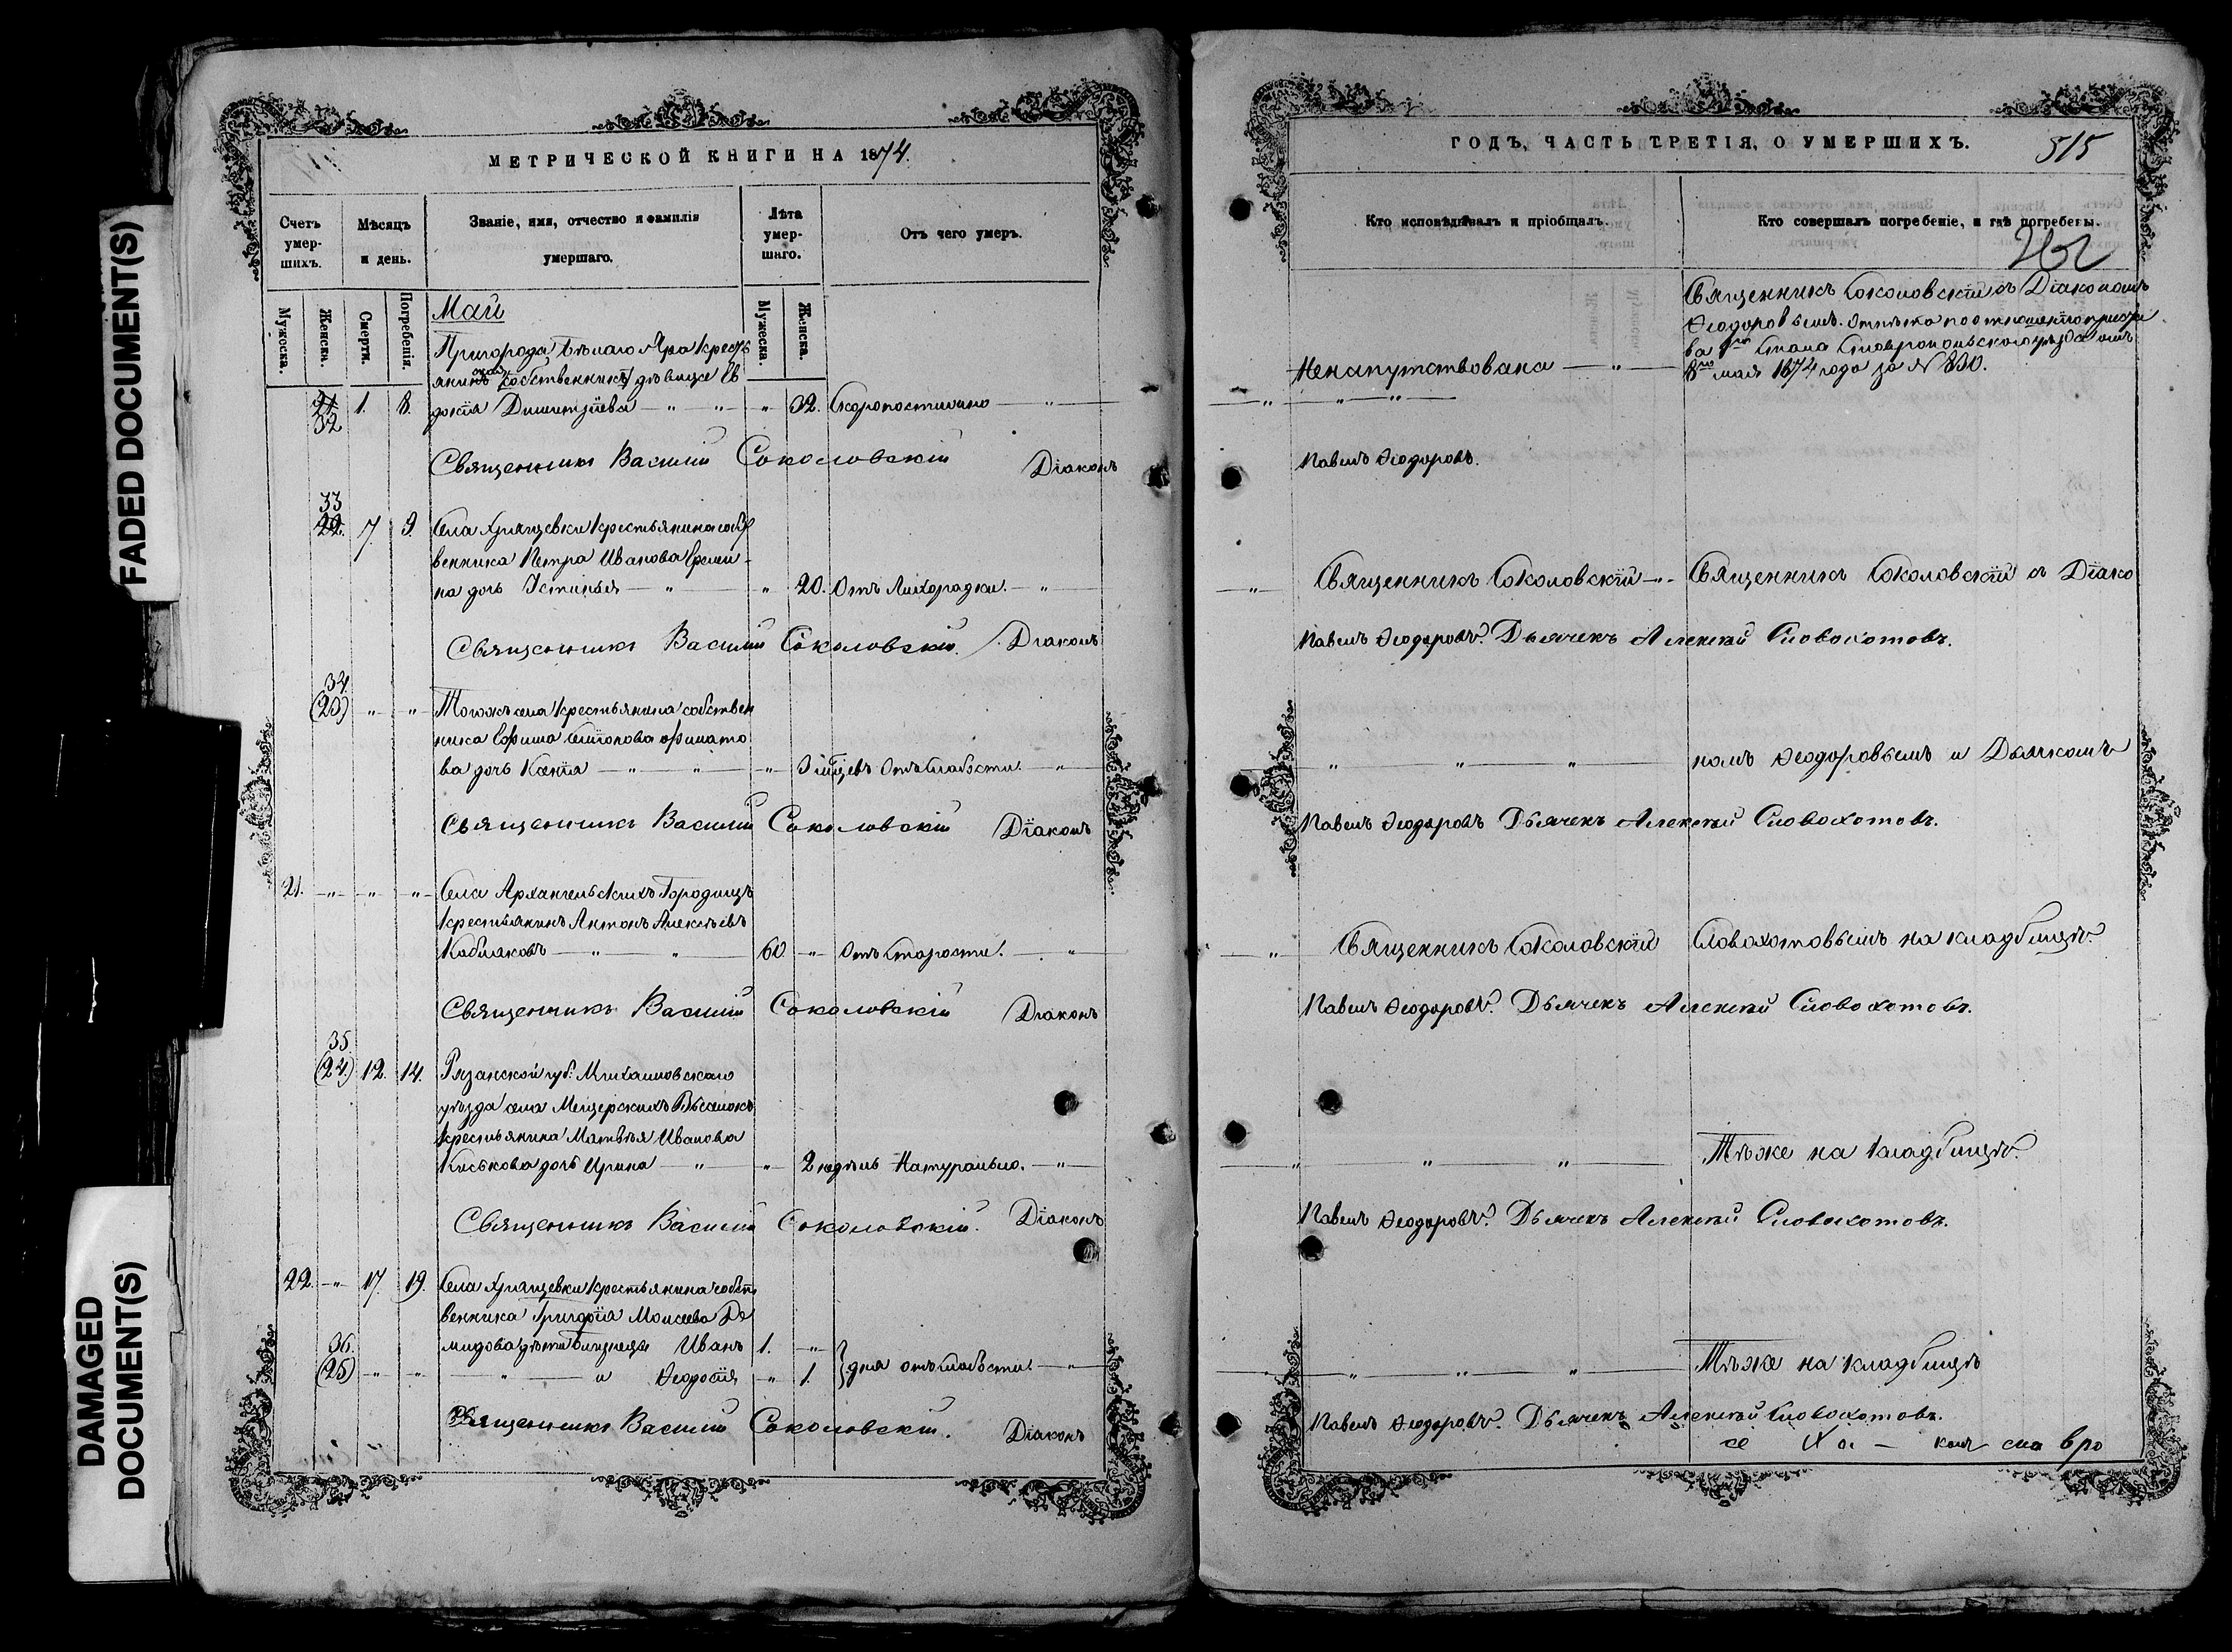 FADED DOCUMENT(S)
DAMAGED
DOCUMENT(S)
МЕТРИЧЕСКОЙ КНИГИ НА 1874.
Счетъ
умер-
шихъ.
Мѣсяцъ
и день.
Званіе, имя, отчество и фамилія
умершаго.
Лѣта
умер-
шаго.
Отъ чего умеръ.
Мужеска.
Женска.
Смерти.
Погребенія.
Мужеска.
Женска.
Май
Пригорода Бѣлаго Яра Кресть
янина собственника дѣвица Ев
21 32 1. 8. докія Димитріева — " — " — " 32. Скоропостижно — "
Священникъ Василій Соколовскій Діаконъ
33
22. 7. 9. Села Хрящевки крестьянина собст
венника Петра Иванова Ереми-
на дочь Устинья — " — " 20. Отъ Лихорадки. — "
Священникъ Василій Соколовскій. Діаконъ
34.
(23) " " Тогожъ села крестьянина собствен
ника Ефима
ва дочь Ксенія — " — " — " Отъ слабости. — "
Священникъ Василій Соколовскій Діаконъ
21. " " " Села Архангельскихъ Городищъ
крестьянинъ Антонъ Алексѣевъ
— " — " 60. " Отъ старости. — "
Священникъ Василій Соколовскій Діаконъ
35.
(24.) 12. 14. Рязанской губ. Михайловскаго
уѣзда села Мещерскихъ Выселокъ
крестьянина Матвѣя Иванова
Киськова дочь Ирина — " — " 2 недѣль Натурально. — "
Священникъ Василій Соколовскій. Діаконъ
22. " 17. 19. Села Хрящевки крестьянина собст
венника Григорія Моисеева Де
36. мидова дѣти близнецы Иванъ 1. "
(25) " " — " — и Ѳеодосія " 1. } дня отъ слабости. — "
Священникъ Василій Соколовскій. Діаконъ
ГОДЪ, ЧАСТЬ ТРЕТІЯ, О УМЕРШИХЪ.
515
Кто исповѣдывалъ и пріобщалъ.
Кто совершалъ погребеніе, и гдѣ погребены.
Священникъ Соколовскій съ Діакономъ
Ѳеодоровымъ.
Стана Ставропольскаго уѣзда отъ
Ненапутствована — " —
8го мая 1874 года за № 830.
Павелъ Ѳеодоровъ.
Священникъ Соколовскій — " — Священникъ Соколовскій съ Діако
Павелъ Ѳеодоровъ. Дьячекъ Алексѣй Словохотовъ.
" " " номъ Ѳеодоровымъ и Дьячкомъ
Павелъ Ѳеодоровъ Дьячекъ Алексѣй Словохотовъ.
" Священникъ Соколовскій Словохотовымъ на кладбищѣ.
Павелъ Ѳеодоровъ. Дьячекъ Алексѣй Словохотовъ.
" " " Тѣже на кладбищѣ.
Павелъ Ѳеодоровъ. Дьячекъ Алексѣй Словохотовъ.
" " " Тѣже на кладбищѣ
Павелъ Ѳеодоровъ. Дьячекъ Алексѣй Словохотовъ.